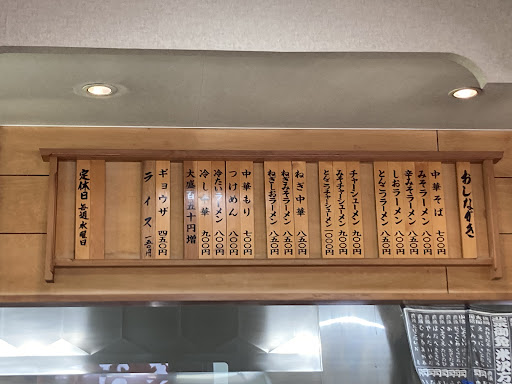 おしながき
中華そば 七〇〇円
みそラーメン 八〇〇円
辛みそラーメン 八五〇円
しおラーメン 八五〇円
とんこつラーメン 八五〇円
チャーシューメン 九〇〇円
みそチャーシューメン 九〇〇円
とんこつチャーシューメン 一〇〇〇円
ねぎ中華 八五〇円
ねぎみそラーメン 八五〇円
ねぎしおラーメン 八五〇円
中華もり 七〇〇円
つけめん 八〇〇円
冷たいラーメン 八〇〇円
冷し中華 九〇〇円
大盛百五十円増
ギョウザ 四五〇円
ライス 一五〇円
定休日 毎週水曜日